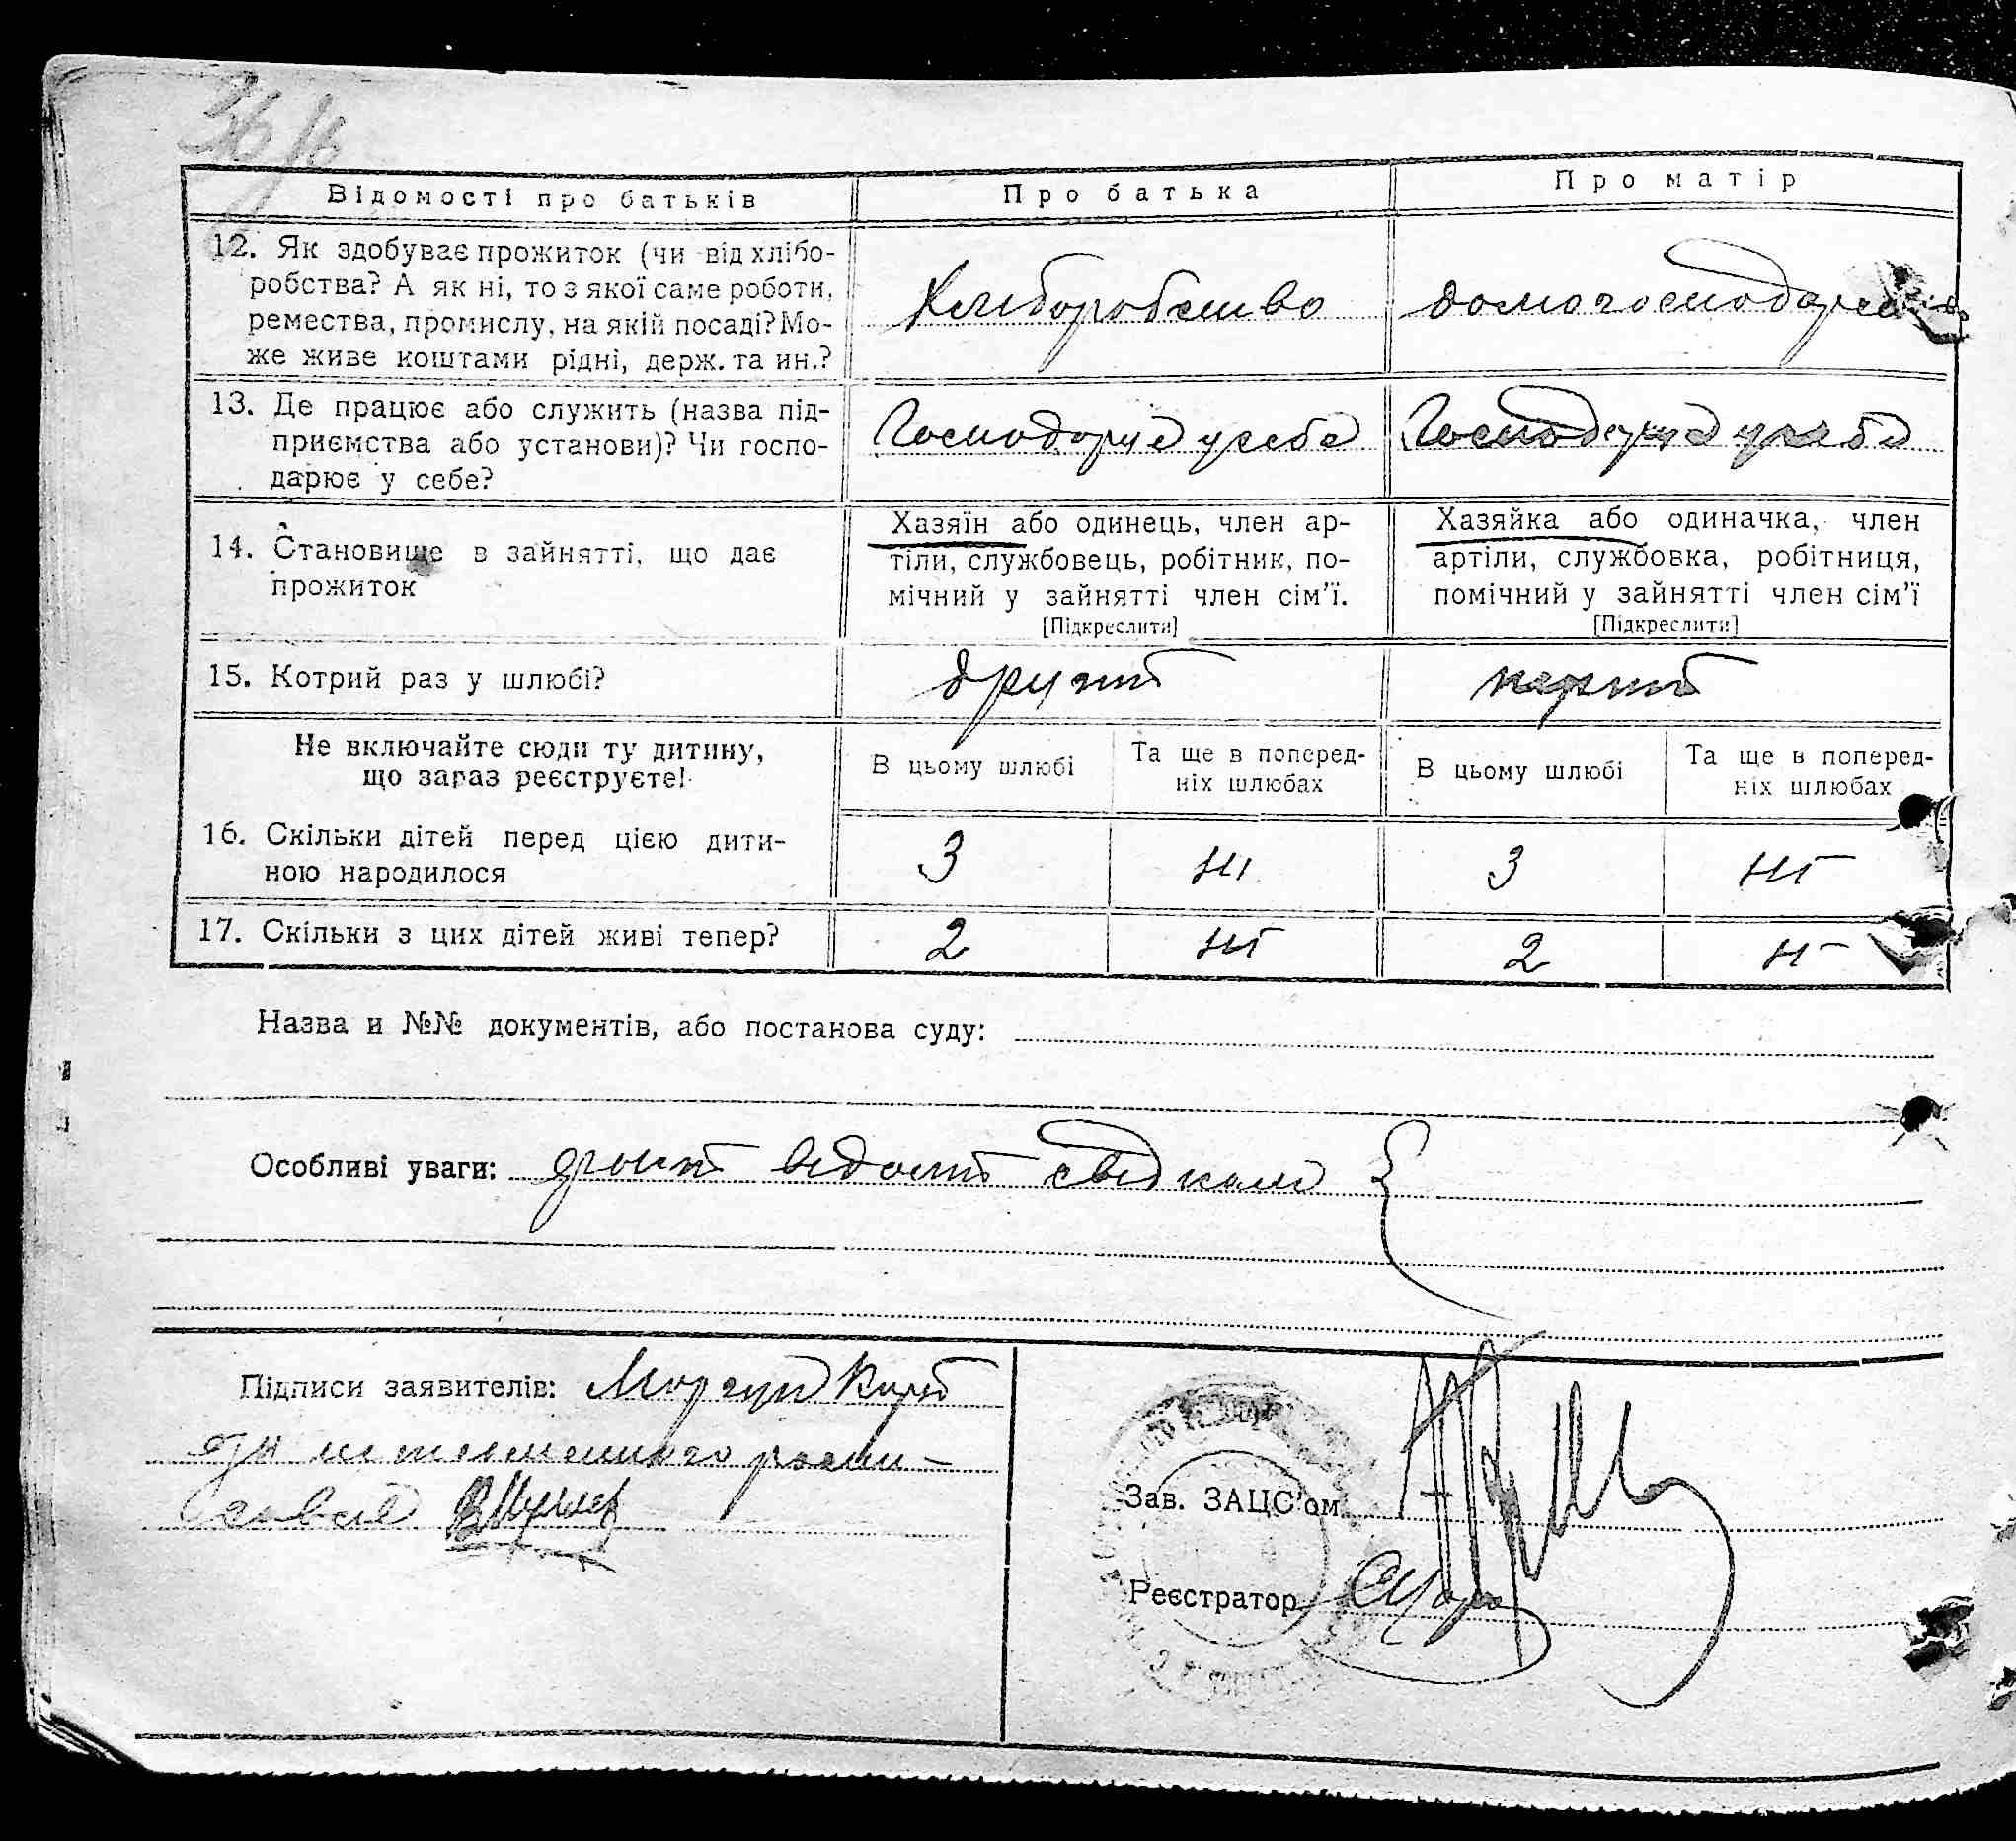 Відомості про батьків
Про батька
Про матір
12. Як здобуває прожиток (чи від хлібо-
робства? А як ні, то з якої саме роботи,
ремества, промислу, на якій посаді? Мо-
же живе коштами рідні, держ. та ин.?
Хліборобство
домогосподар
13. Де працює або служить (назва під-
приємства або установи)? Чи госпо-
дарює у себе?
Господарує у себе
Господарує у себе
14. Становище в зайнятті, що дає
прожиток
Хазяїн або одинець, член ар-
тіли, службовець, робітник, по-
мічний у зайнятті член сім'ї.
[Підкреслити]
Хазяйка або одиначка, член
артіли, службовка, робітниця,
помічний у зайнятті член сім'ї
[Підкреслити]
15. Котрий раз у шлюбі?
другий
перший
Не включайте сюди ту дитину,
що зараз реєструєте!
В цьому шлюбі
Та ще в поперед-
ніх шлюбах
В цьому шлюбі
Та ще в поперед-
ніх шлюбах
16. Скільки дітей перед цією дити-
ною народилося
3
ні
3
ні
17. Скільки з цих дітей живі тепер?
2
ні
2
ні
Назва и №№ документів, або постанова суду:
Особливі уваги: свідками
Підписи заявителів: Моргун
Зав. ЗАЦС'ом
Реєстратор